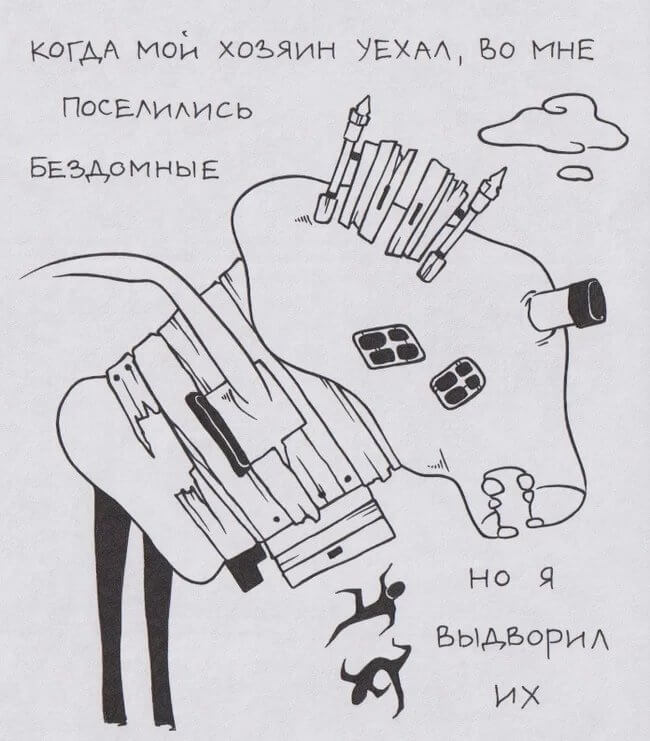 КОГДА МОЙ ХОЗЯИН УЕХАЛ, ВО МНЕ
ПОСЕЛИЛИСЬ
БЕЗДОМНЫЕ
НО Я
ВЫДВОРИЛ
ИХ